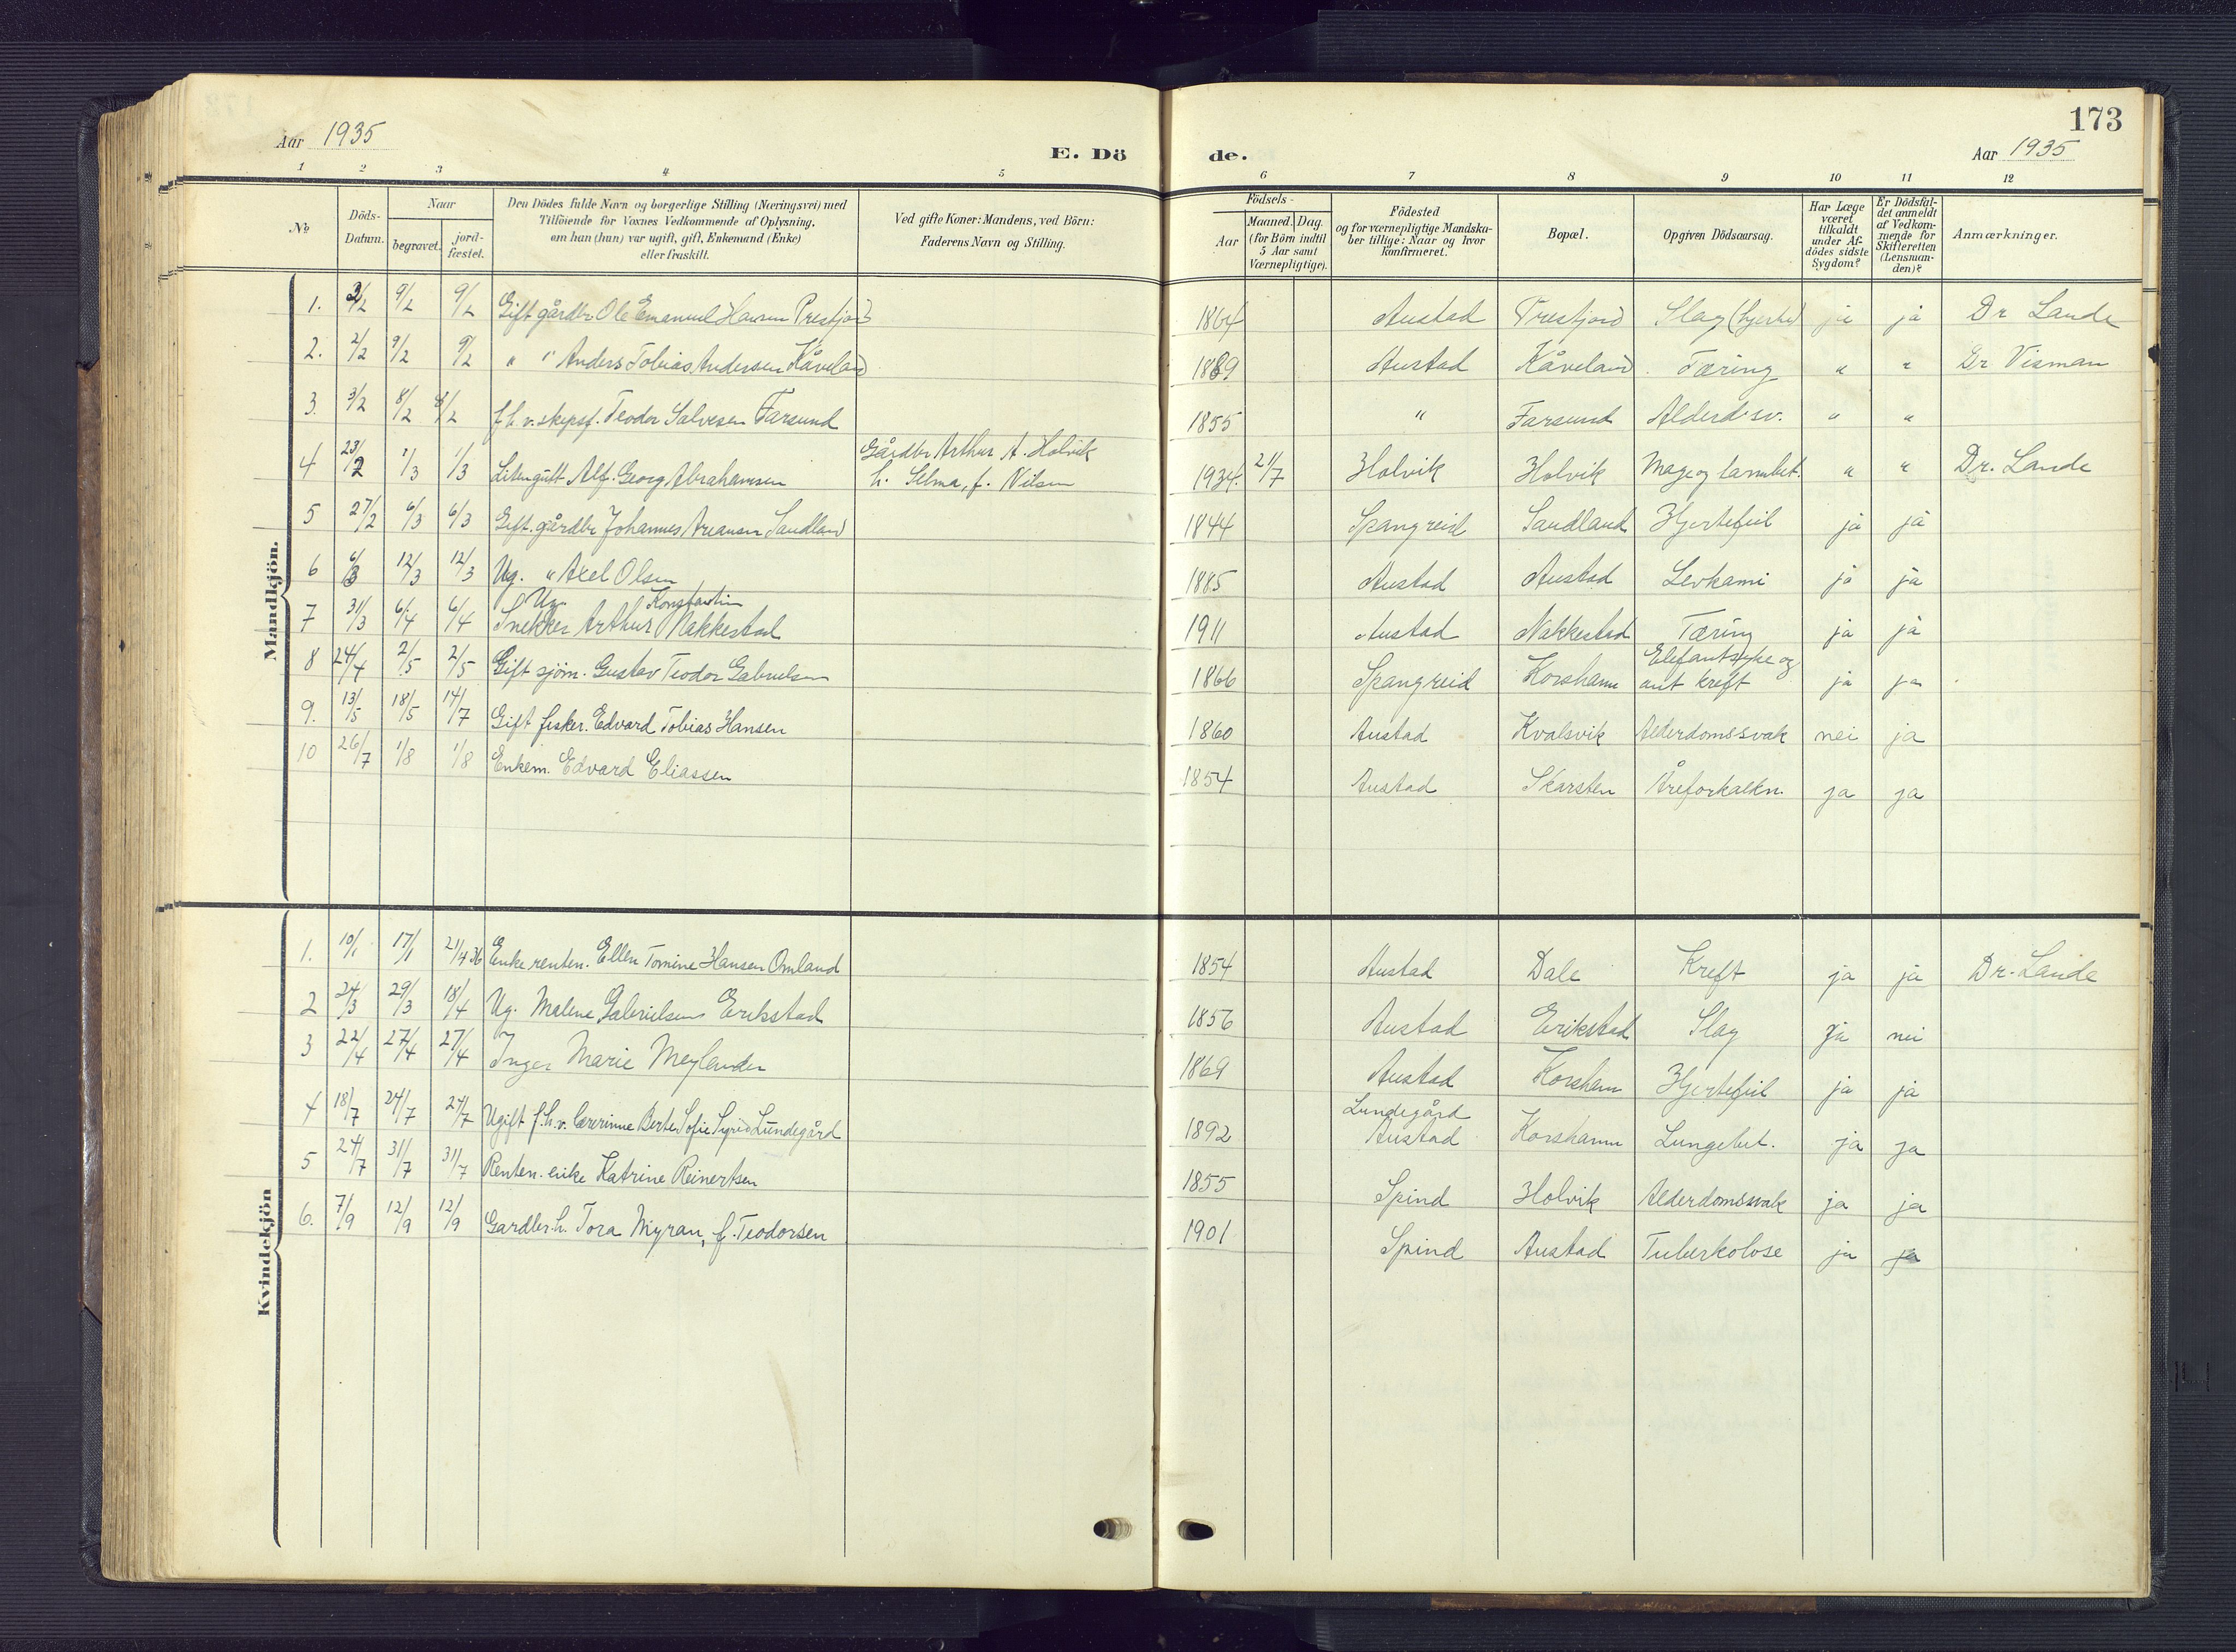 173
Aar 1935
E. Dö de.
Aar 1935
1 2 3 4 5 6 7 8 9 10 11 12
No
Döds-Datum.
Naar
begravet.
jord-fæstet.
Den Dödes fulde Navn og borgerlige Stilling (Næringsvei) med
Tilföiende for Voxnes Vedkommende af Oplysning,
om han (hun) var ugift, gift, Enkemand (Enke)
eller fraskilt.
Ved gifte Koner: Mandens, ved Börn:
Faderens Navn og Stilling.
Födsels-
Aar
Maaned. Dag.
(for Börn indtil
5 Aar samt
Værnepligtige).
Födested
og for værnepligtige Mandska-
ber tillige: Naar og hvor
konfirmeret.
Bopæl.
Opgiven Dödsaarsag.
Har Læge
været
tilkaldt
under Af-
dödes sidste
Sygdom?
Er Dödsfal-
det anmeldt
af Vedkom-
mende for
Skifteretten
(Lensman-
den)?
Anmærkninger.
Mandkjön.
1. 2/2 9/2 9/2 Gift gårdbr. Ole Emanuel Hansen Prestjord 1864 Austad Prestjord Slag (hjerte) ja ja Dr Lande
2. 2/2 9/2 9/2 " " Anders Tobias Andersen Kåveland 1889 Austad Kåveland Tæring " " Dr Visman
3. 3/2 8/2 8/2 f.h.v. skipsf. Teodor Salvesen Farsund 1855 " Farsund Alderd.sv. " "
4 23/2 1/3 1/3 Litengutt Alf. Georg Abrahamsen Gårdbr Arthur A. Holvik
h. Selma, f. Nilsen 1934. 21/7 Holvik Holvik Mage og tarmbet. " " Dr. Lande
5 27/2 6/3 6/3 Gift. gårdbr Johannes Areansen Sandland 1844 Spangreid Sandland Hjertefeil ja ja
6 6/3 12/3 12/3 Ug. " Axel Olsen 1885 Austad Austad Levkami ja ja
7 31/3 6/4 6/4 Ug. Konstantin
Snekker Arthur Nakkestad 1911 Austad Nakkestad Tæring ja ja
8 24/4 2/5 2/5 Gift sjöm. Gustav Teodor Gabrielsen 1866 Spangreid Korshamn Elefantsyke og
ant kreft ja ja
9. 13/5 18/5 14/7 Gift fisker. Edvard Tobias Hansen 1860 Austad Kvalsvik Alderdomssvak nei ja
10 26/7 1/8 1/8 Enkem. Edvard Eliassen 1854 Austad Skarsten Åreforkalkn. ja ja
Kvindekjön
1. 10/1 17/1 21/4 36 Enke renten. Ellen Tomine Hansen Omland 1854 Austad Dale Kreft ja ja Dr. Lande
2 24/3 29/3 18/4 Ug. Malene Gabrielsen Erikstad 1856 Austad Erikstad Slag ja nei
3 22/4 27/4 27/4 Inger Marie Meylander 1869 Austad Korshamn Hjertefeil ja ja
4 18/7 24/7 24/7 Ugift f.h.v. lærerinne Berte Sofie Sigrid Lundegård 1892 Lundegård
Austad Korshamn Lungebet. ja ja
5 24/7 31/7 31/7 Renten. enke Katrine Reinertsen 1855 Spind Holvik Alderdomssvak ja ja
6. 7/9 12/9 12/9 Gardbr. h. Tora Myran, f. Teodorsen 1901 Spind Austad Tuberkolose ja ja